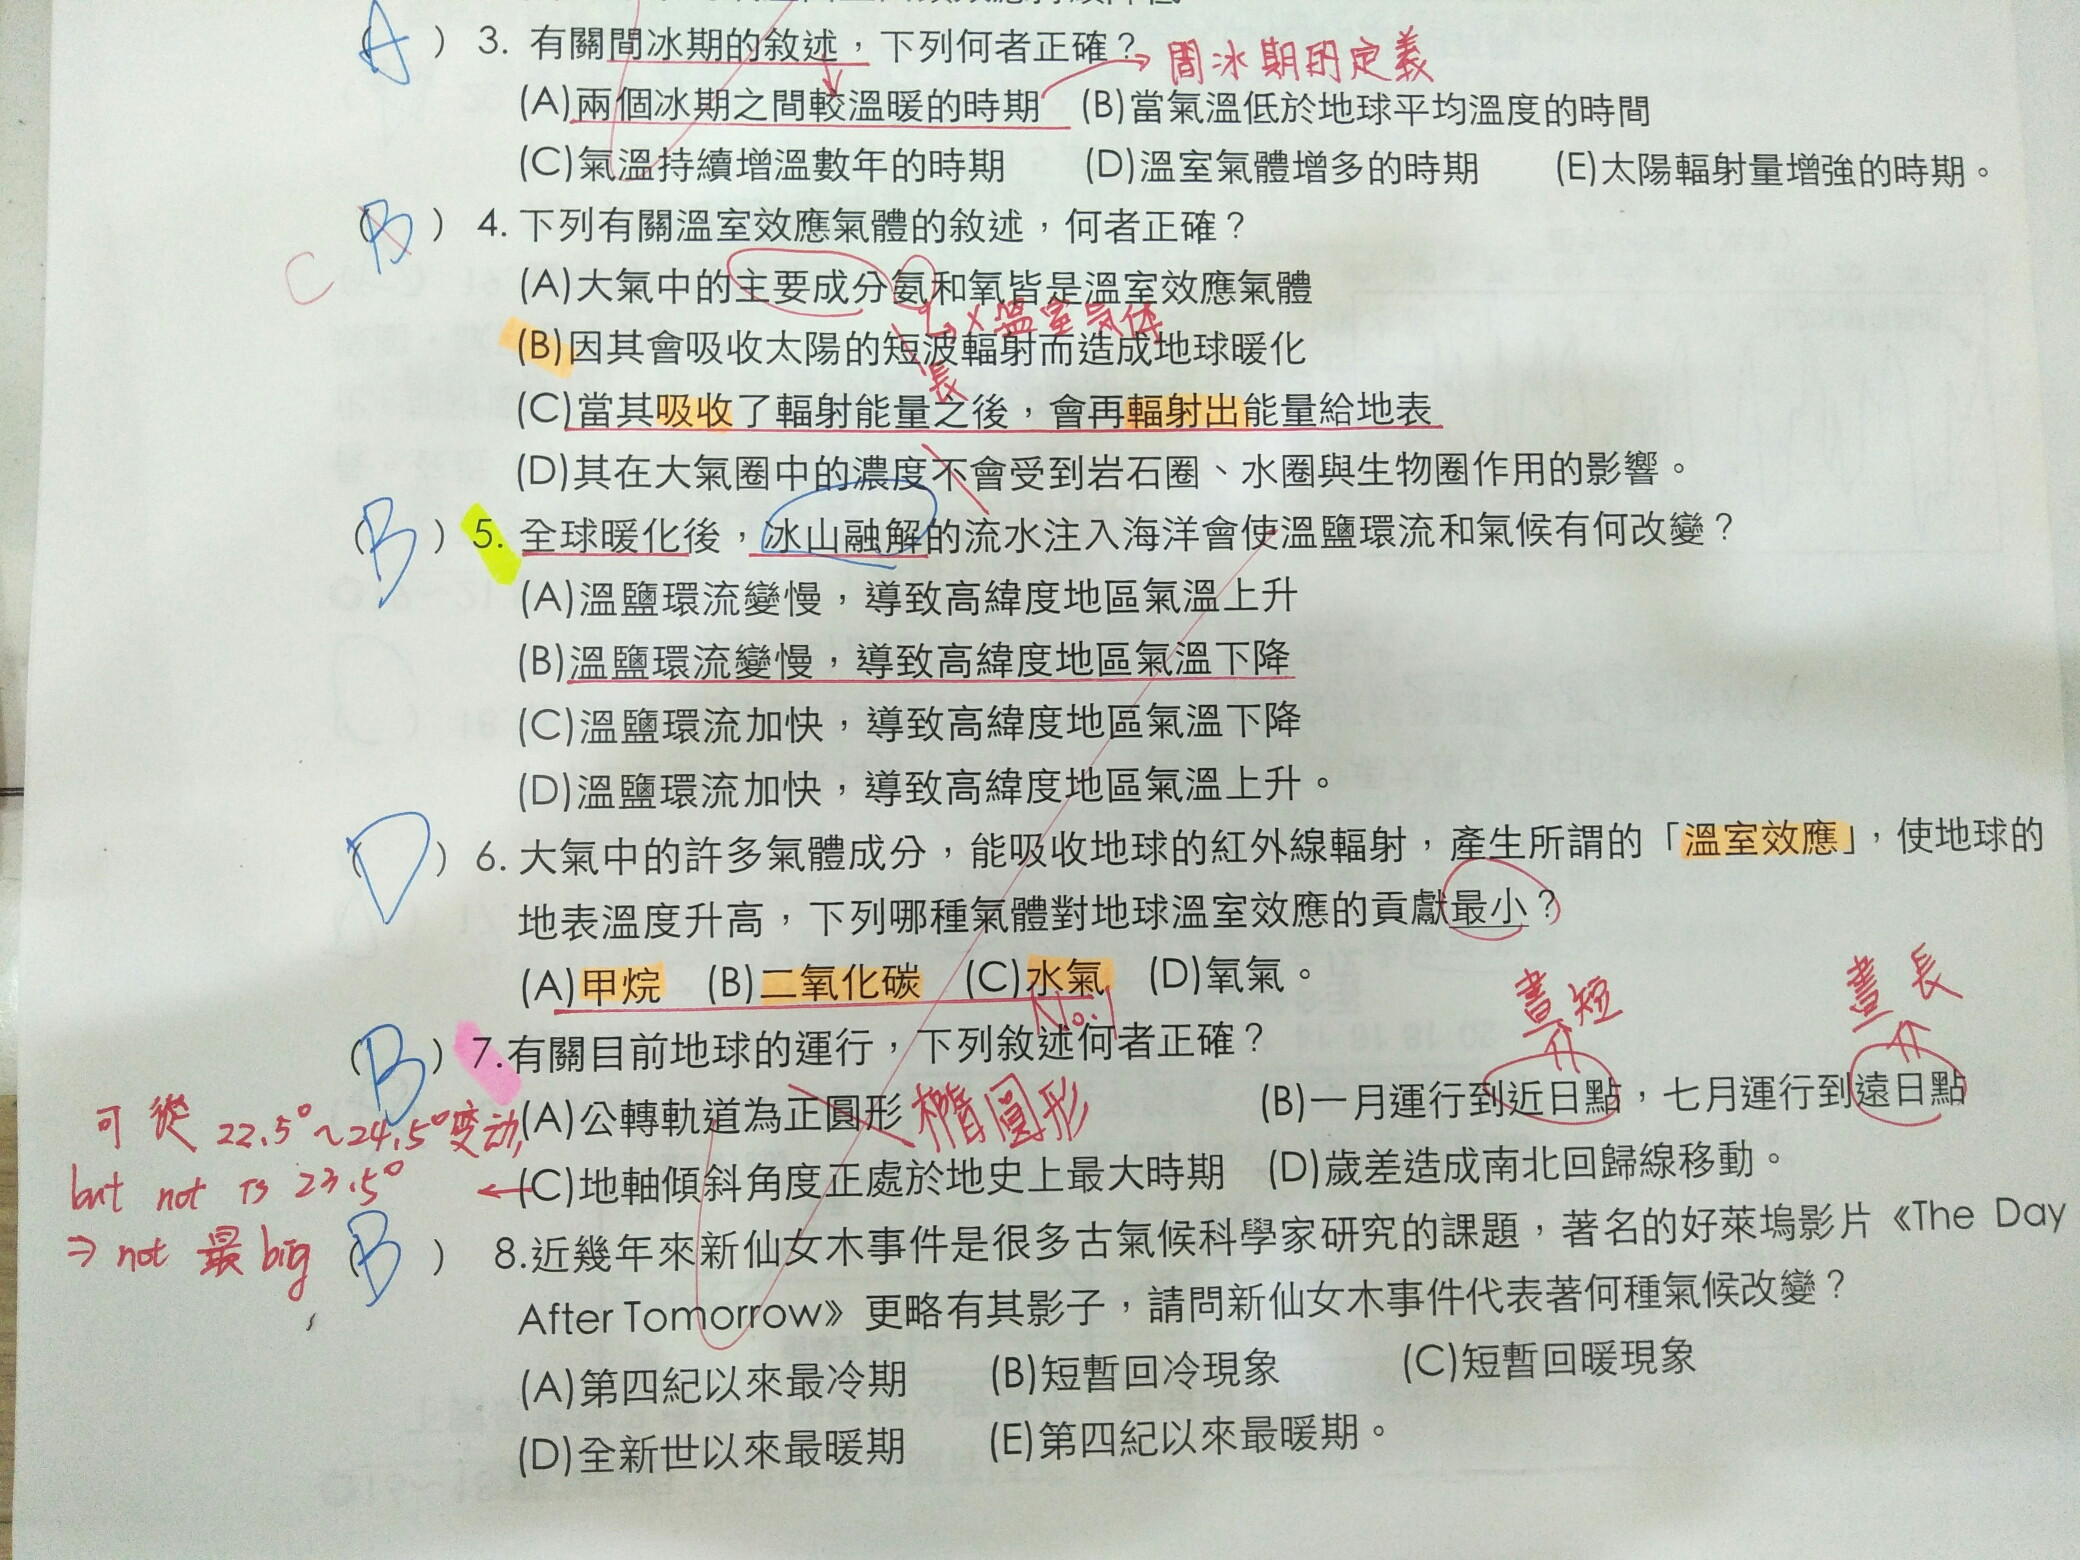 (A) 3. 有關間冰期的敘述，下列何者正確？
間冰期的定義
(A)兩個冰期之間較溫暖的時期 (B)當氣溫低於地球平均溫度的時間
(C)氣溫持續增溫數年的時期 (D)溫室氣體增多的時期 (E)太陽輻射量增強的時期。
(B) 4. 下列有關溫室效應氣體的敘述，何者正確？
C
(A)大氣中的主要成分氨和氧皆是溫室效應氣體
x 溫室気体
(B)因其會吸收太陽的短波輻射而造成地球暖化
長
(C)當其吸收了輻射能量之後，會再輻射出能量給地表
(D)其在大氣圈中的濃度不會受到岩石圈、水圈與生物圈作用的影響。
(B) 5. 全球暖化後，冰山融解的流水注入海洋會使溫鹽環流和氣候有何改變？
(A)溫鹽環流變慢，導致高緯度地區氣溫上升
(B)溫鹽環流變慢，導致高緯度地區氣溫下降
(C)溫鹽環流加快，導致高緯度地區氣溫下降
(D)溫鹽環流加快，導致高緯度地區氣溫上升。
(D) 6. 大氣中的許多氣體成分，能吸收地球的紅外線輻射，產生所謂的「溫室效應」，使地球的
地表溫度升高，下列哪種氣體對地球溫室效應的貢獻最小？
(A)甲烷 (B)二氧化碳 (C)水氣 (D)氧氣。
No.1
晝短
晝長
(B) 7.有關目前地球的運行，下列敘述何者正確？
(A)公轉軌道為正圓形 橢圓形 (B)一月運行到近日點，七月運行到遠日點
可從 22.5°~24.5°变动,
(C)地軸傾斜角度正處於地史上最大時期 (D)歲差造成南北回歸線移動。
but not is 23.5°
⇒ not 最 big
(B) 8.近幾年來新仙女木事件是很多古氣候科學家研究的課題，著名的好萊塢影片《The Day
After Tomorrow》更略有其影子，請問新仙女木事件代表著何種氣候改變？
(A)第四紀以來最冷期 (B)短暫回冷現象 (C)短暫回暖現象
(D)全新世以來最暖期 (E)第四紀以來最暖期。